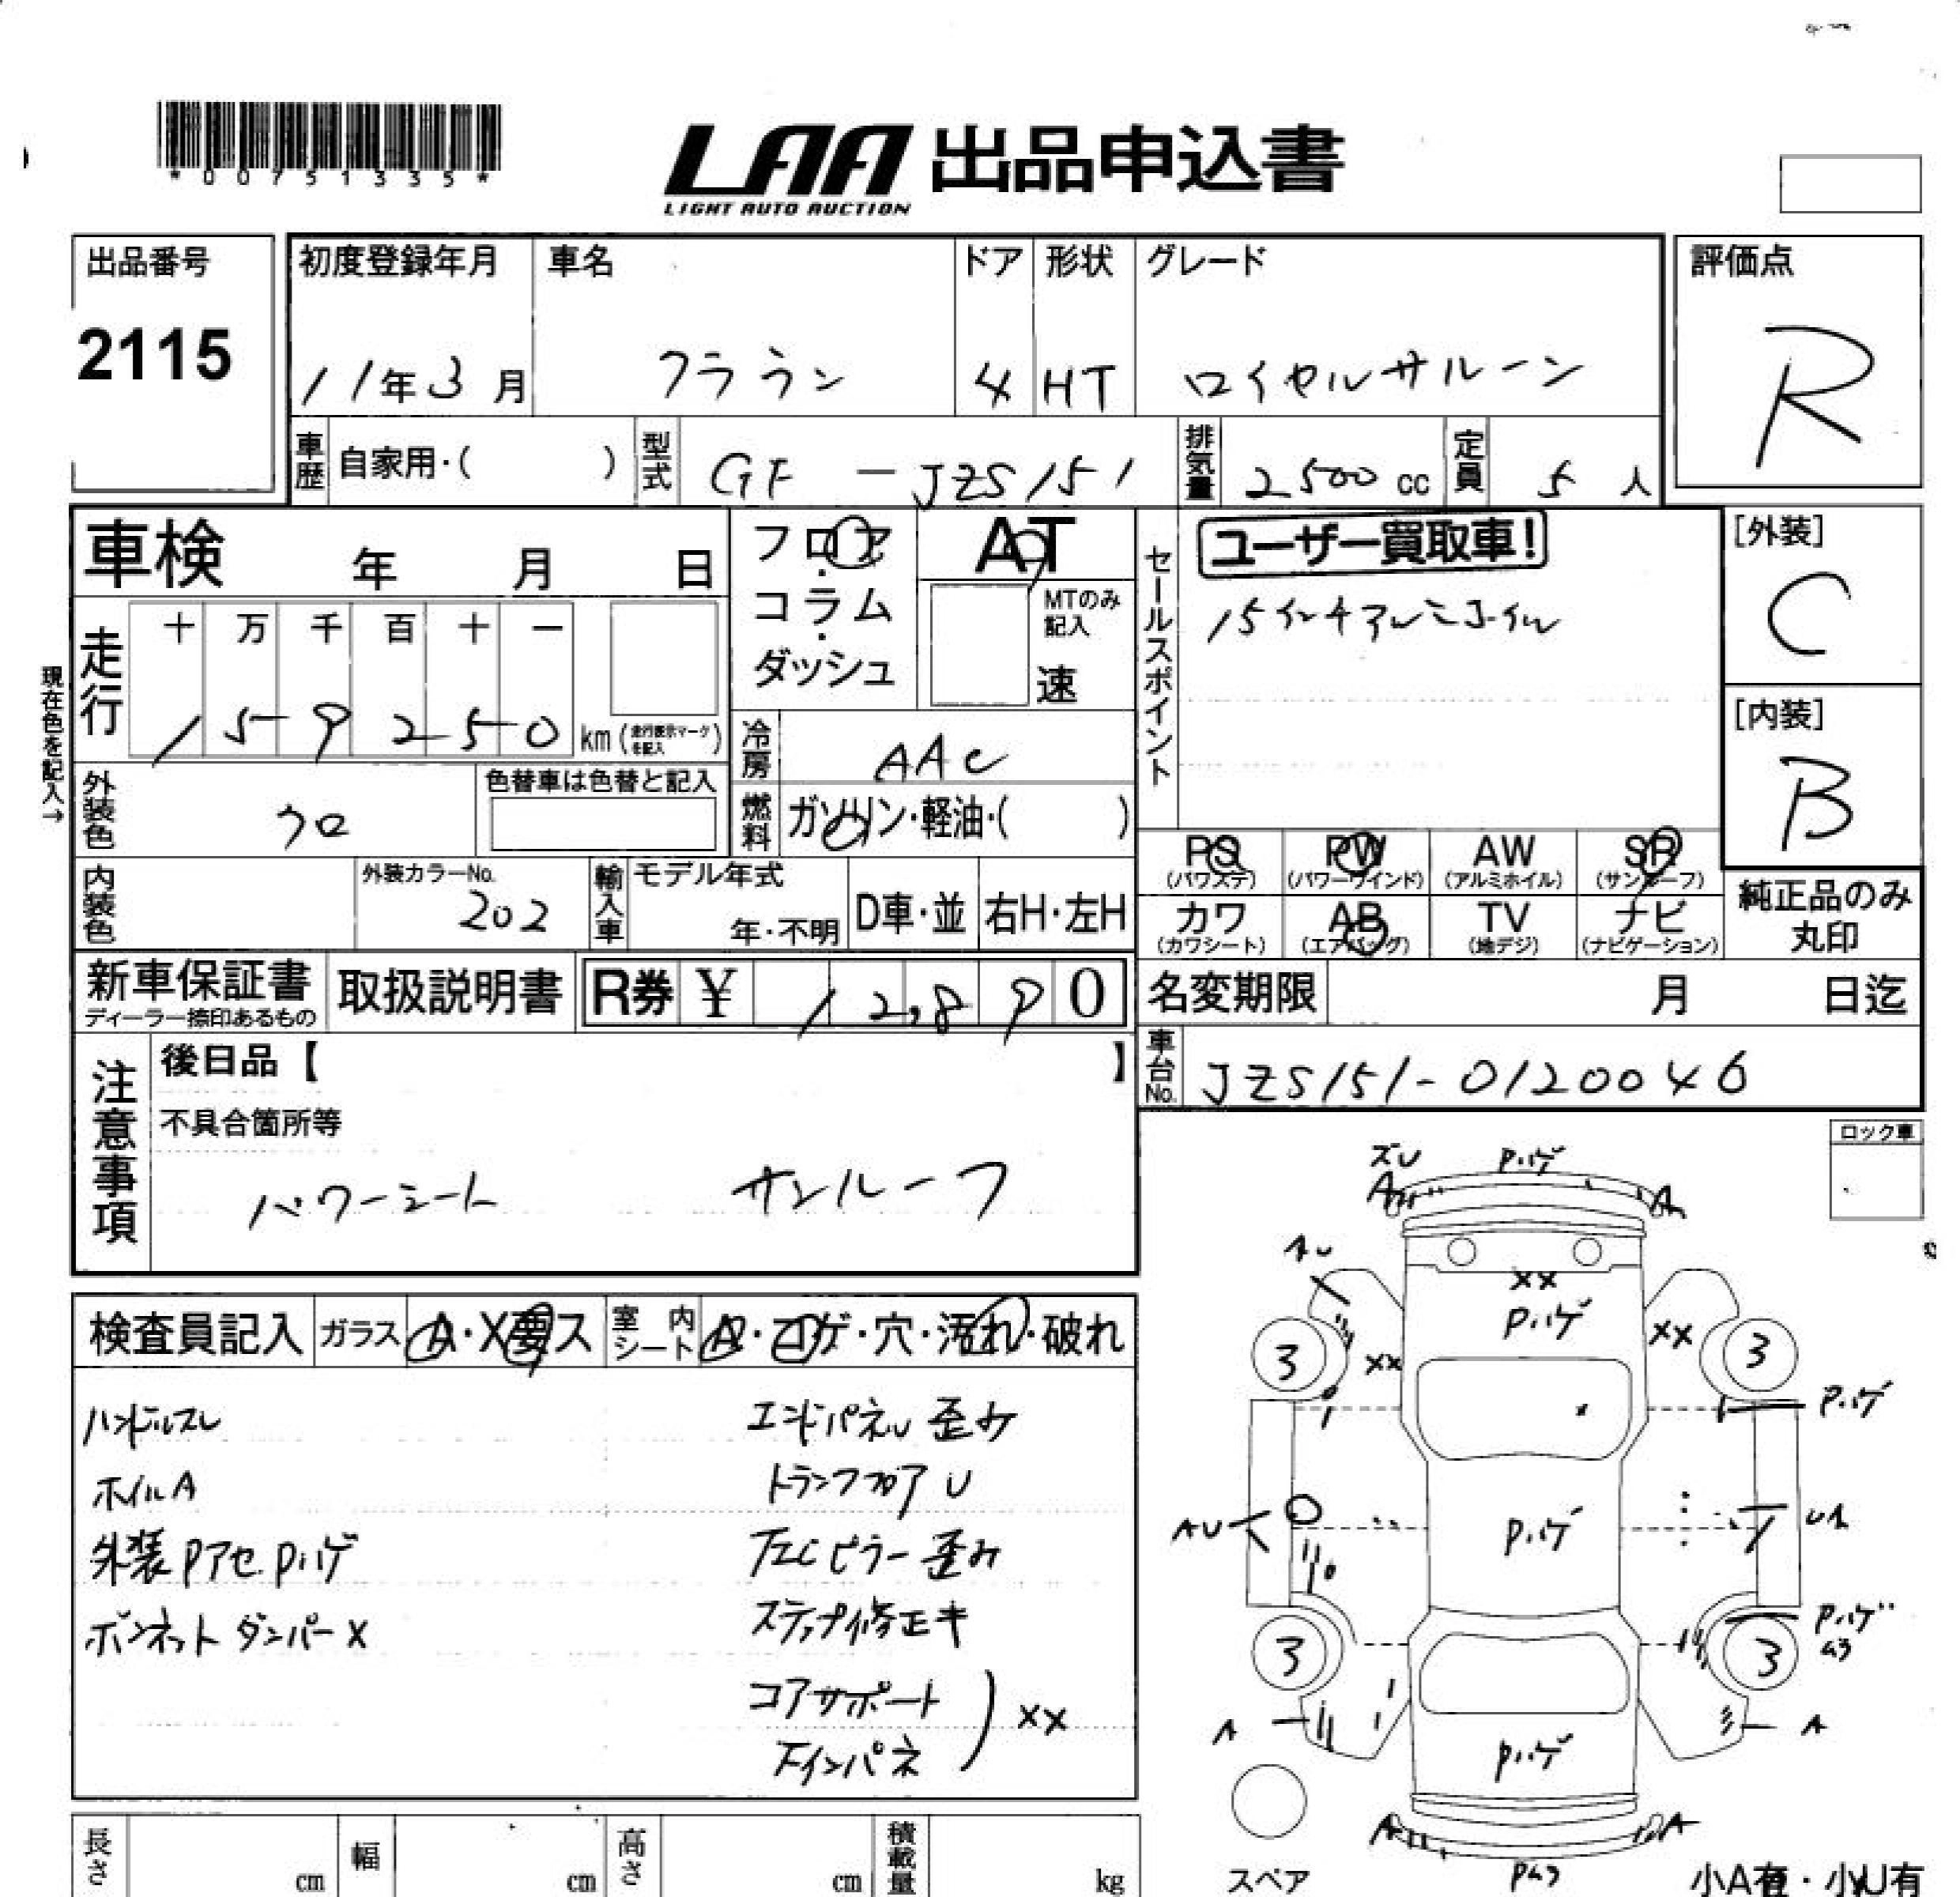 *00751335*
LAA 出品申込書
LIGHT AUTO AUCTION
出品番号
2115
初度登録年月
11年3月
車名
クラウン
ドア
4
形状
HT
グレード
ロイヤルサルーン
評価点
R
車歴 自家用・( )
型式 GF-JZS151
排気量 2500cc
定員 5人
車検 年 月 日
フロア・コラム・ダッシュ
AT
MTのみ記入
速
セールスポイント
ユーザー買取車!
15インチアルミホイル
[外装]
C
[内装]
B
現在色を記入→
走行
十 万 千 百 十 一
159250 km(走行表示マークを記入)
冷房 AAC
燃料 ガソリン・軽油・( )
外装色 クロ
色替車は色替と記入
内装色
外装カラーNo. 202
輸入車
モデル年式
年・不明
D車・並
右H・左H
PS (パワステ)
PW (パワーウインド)
AW (アルミホイル)
SR (サンルーフ)
カワ (カワシート)
AB (エアバッグ)
TV (地デジ)
ナビ (ナビゲーション)
純正品のみ丸印
新車保証書
ディーラー捺印あるもの
取扱説明書
R券 ¥ 12,890
名変期限 月 日迄
車台No. JZS151-0120046
注意事項
後日品【 】
不具合箇所等
パワーシート サンルーフ
ロック車
検査員記入
ガラス A・X要ス
室内シート A・コゲ・穴・汚れ・破れ
ハンドルスレ
ホイルA
外装Pアセ.Pハゲ
ボンネットダンパーX
エンドパネル歪み
トランクフロアU
左Cピラー歪み
ステップ修正キ
コアサポート
下インパネ
XX
ズU
Pハゲ
A
A
AU
XX
Pハゲ
XX
XX
3
3
Pハゲ
AU
Pハゲ
UA
3
3
Pハゲ
A
A
Pハゲ
A
A
スペア
小A有・小U有
長さ cm
幅 cm
高さ cm
積載量 kg